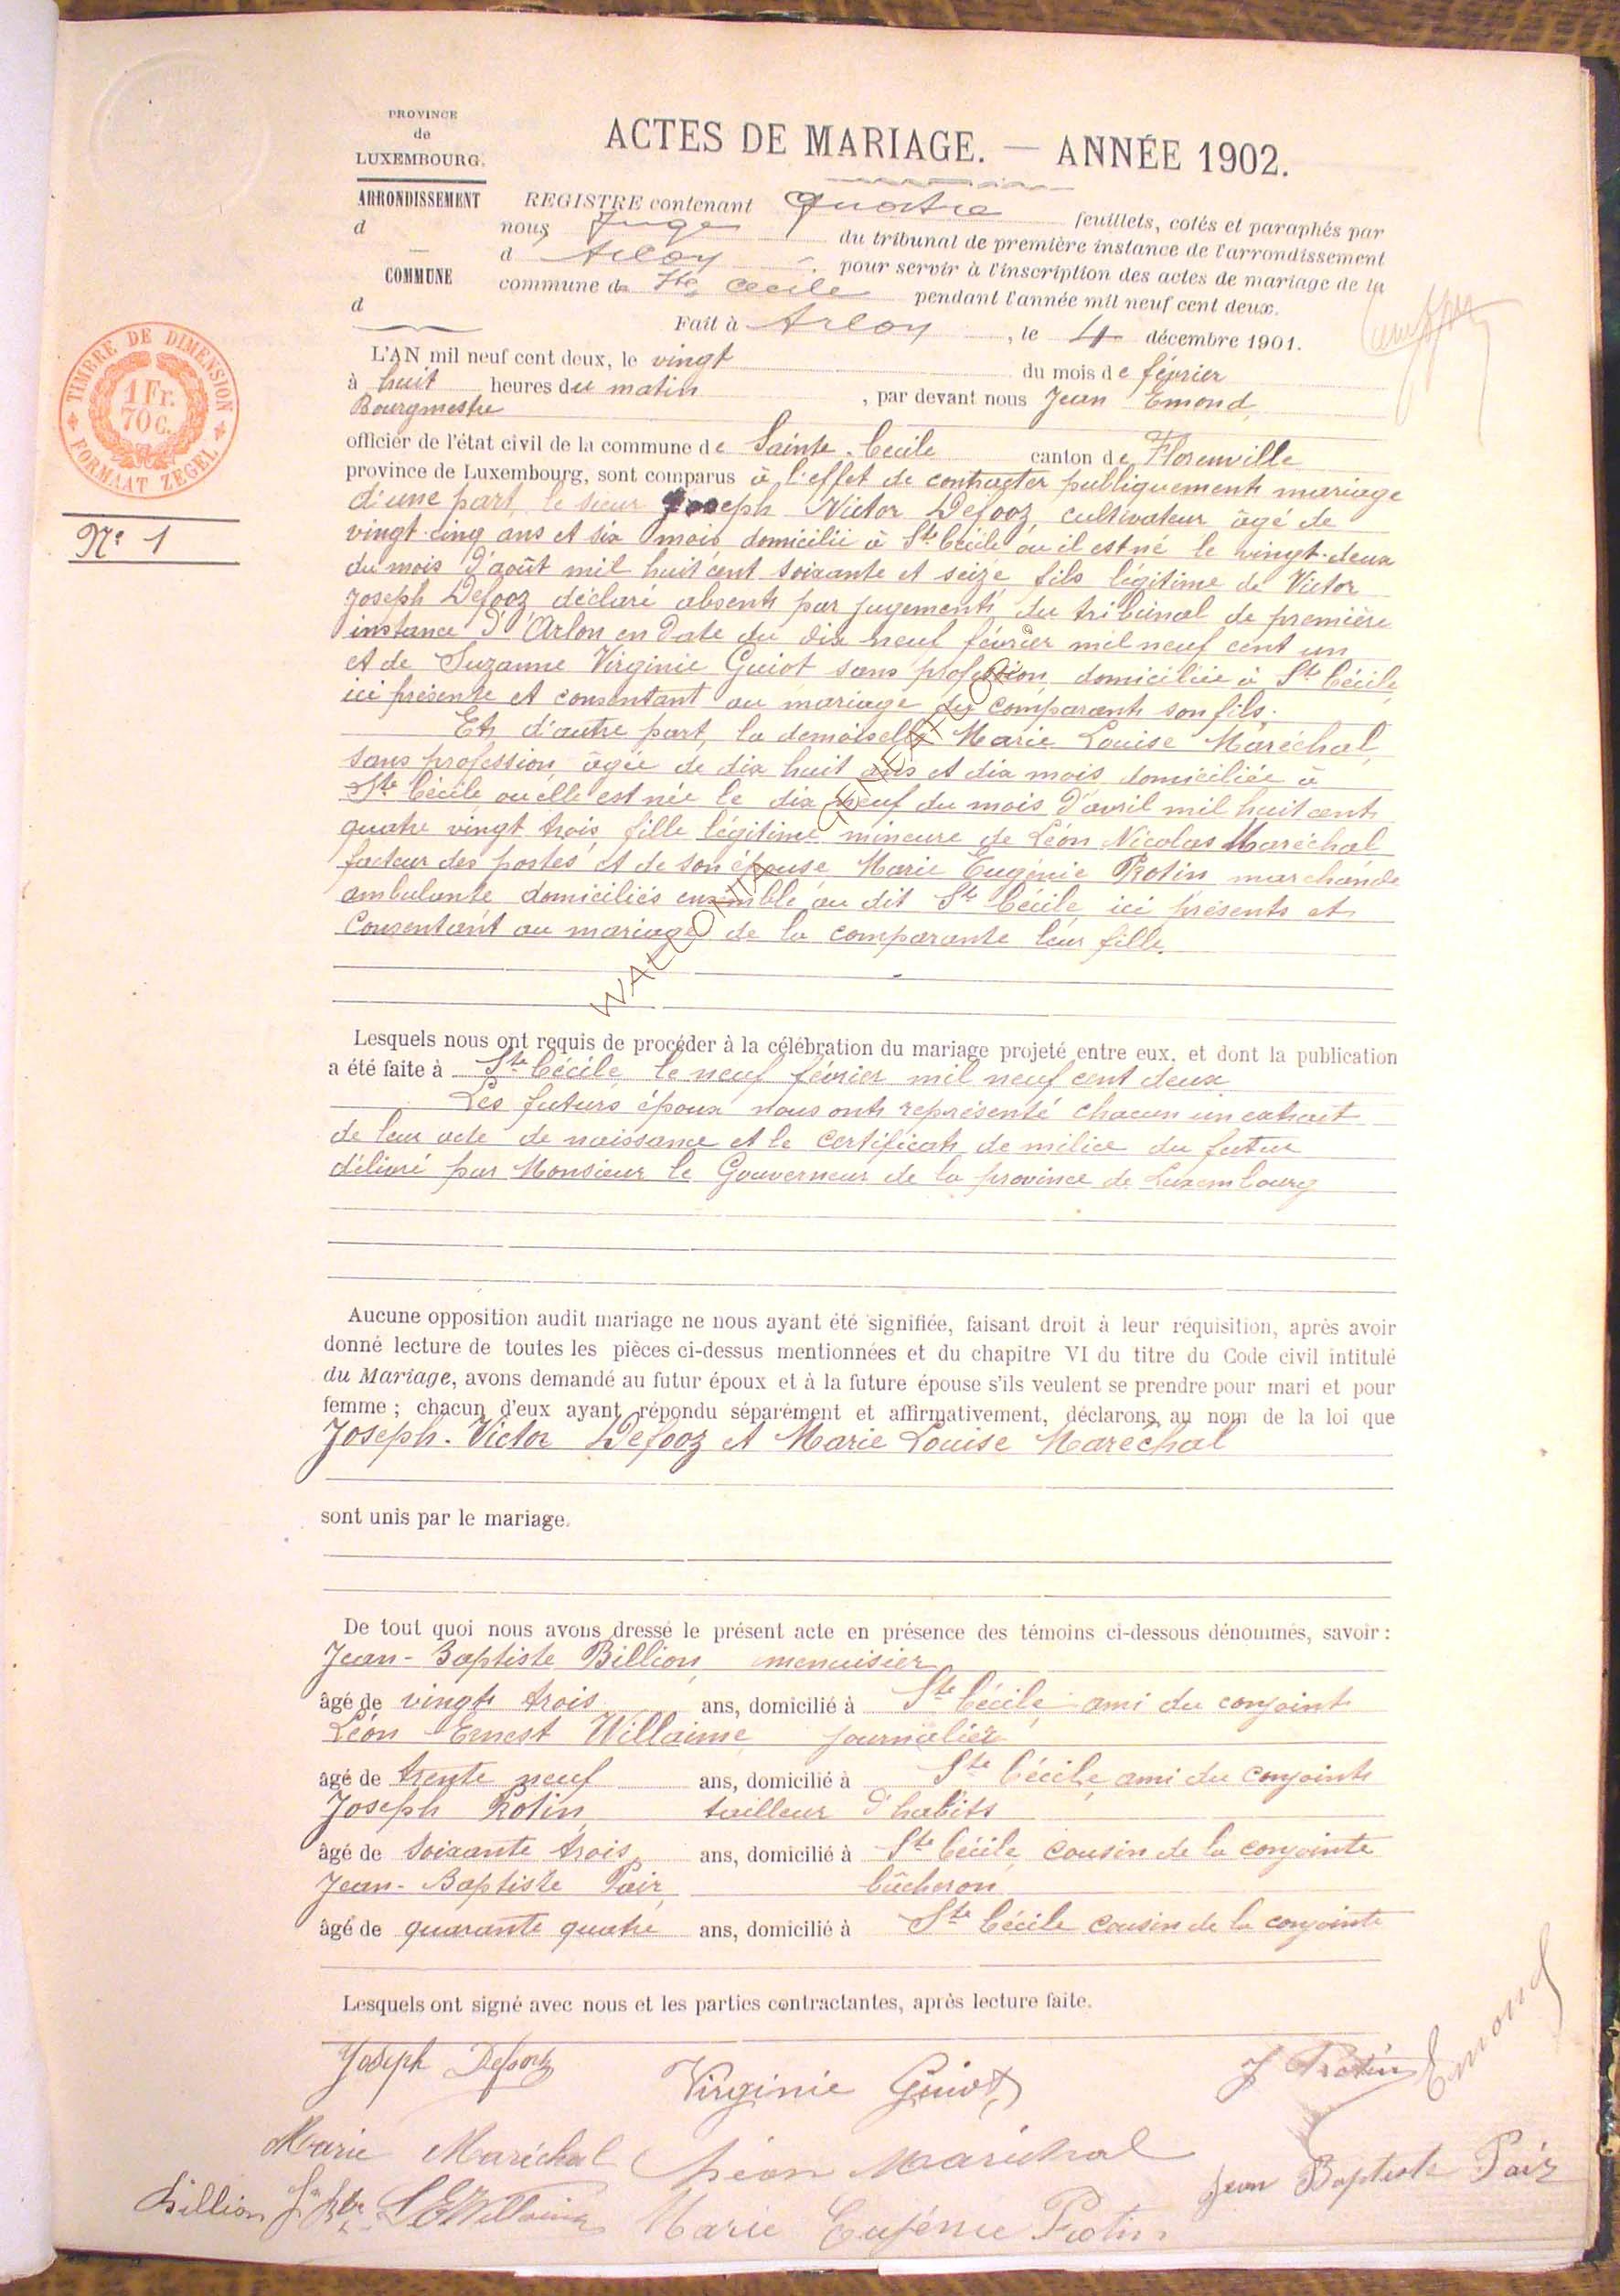 PROVINCE
de
LUXEMBOURG.
ARRONDISSEMENT
d
COMMUNE
d
ACTES DE MARIAGE. — ANNÉE 1902.
REGISTRE contenant quatre feuillets, cotés et paraphés par
nous Juge du tribunal de première instance de l'arrondissement
d Arlon pour servir à l'inscription des actes de mariage de la
commune de Ste Cécile pendant l'année mil neuf cent deux.
Fait à Arlon, le 4 décembre 1901.
TIMBRE DE DIMENSION
1 Fr.
70 C.
FORMAAT ZEGEL
N° 1
L'AN mil neuf cent deux, le vingt du mois de février
à huit heures du matin, par devant nous Jean Emond
Bourgmestre
officier de l'état civil de la commune de Sainte-Cécile canton de Florenville
province de Luxembourg, sont comparus à l'effet de contracter publiquement mariage
d'une part, le sieur Joseph Victor Defooz, cultivateur âgé de
vingt-cinq ans et six mois domicilié à Ste Cécile où il est né le vingt-deux
du mois d'août mil huit cent soixante et seize, fils légitime de Victor
Joseph Defooz, déclaré absent par jugement du tribunal de première
instance d'Arlon en date du dix neuf février mil neuf cent un
et de Suzanne Virginie Guiot sans profession, domiciliée à Ste Cécile,
ici présente et consentant au mariage du comparant son fils.
Et d'autre part, la demoiselle Marie Louise Maréchal,
sans profession âgée de dix huit ans et dix mois domiciliée à
Ste Cécile où elle est née le dix neuf du mois d'avril mil huit cent
quatre vingt trois, fille légitime mineure de Léon Nicolas Maréchal
facteur des postes et de son épouse Marie Eugénie Protin marchande
ambulante domiciliés ensemble au dit Ste Cécile, ici présents et
consentant au mariage de la comparante leur fille.
Lesquels nous ont requis de procéder à la célébration du mariage projeté entre eux, et dont la publication
a été faite à Ste Cécile le neuf février mil neuf cent deux
Les futurs époux nous ont représenté chacun un extrait
de leur acte de naissance et le certificat de milice du futur
délivré par Monsieur le Gouverneur de la province de Luxembourg
Aucune opposition audit mariage ne nous ayant été signifiée, faisant droit à leur réquisition, après avoir
donné lecture de toutes les pièces ci-dessus mentionnées et du chapitre VI du titre du Code civil intitulé
du Mariage, avons demandé au futur époux et à la future épouse s'ils veulent se prendre pour mari et pour
femme ; chacun d'eux ayant répondu séparément et affirmativement, déclarons au nom de la loi que
Joseph-Victor Defooz et Marie Louise Maréchal
sont unis par le mariage.
De tout quoi nous avons dressé le présent acte en présence des témoins ci-dessous dénommés, savoir :
Jean-Baptiste Billion, menuisier
âgé de vingt trois ans, domicilié à Ste Cécile, ami du conjoint
Léon Ernest Willaime, journalier
âgé de trente neuf ans, domicilié à Ste Cécile, ami du conjoint
Joseph Protin, tailleur d'habits
âgé de soixante trois ans, domicilié à Ste Cécile, cousin de la conjointe
Jean-Baptiste Pair, bûcheron
âgé de quarante quatre ans, domicilié à Ste Cécile cousin de la conjointe
Lesquels ont signé avec nous et les parties contractantes, après lecture faite.
Joseph Defooz
Virginie Guiot
J Protin
Emond
Marie Maréchal
Léon Maréchal
Jean Baptiste Pair
Billion
LEWillaime
Marie Eugénie Protin